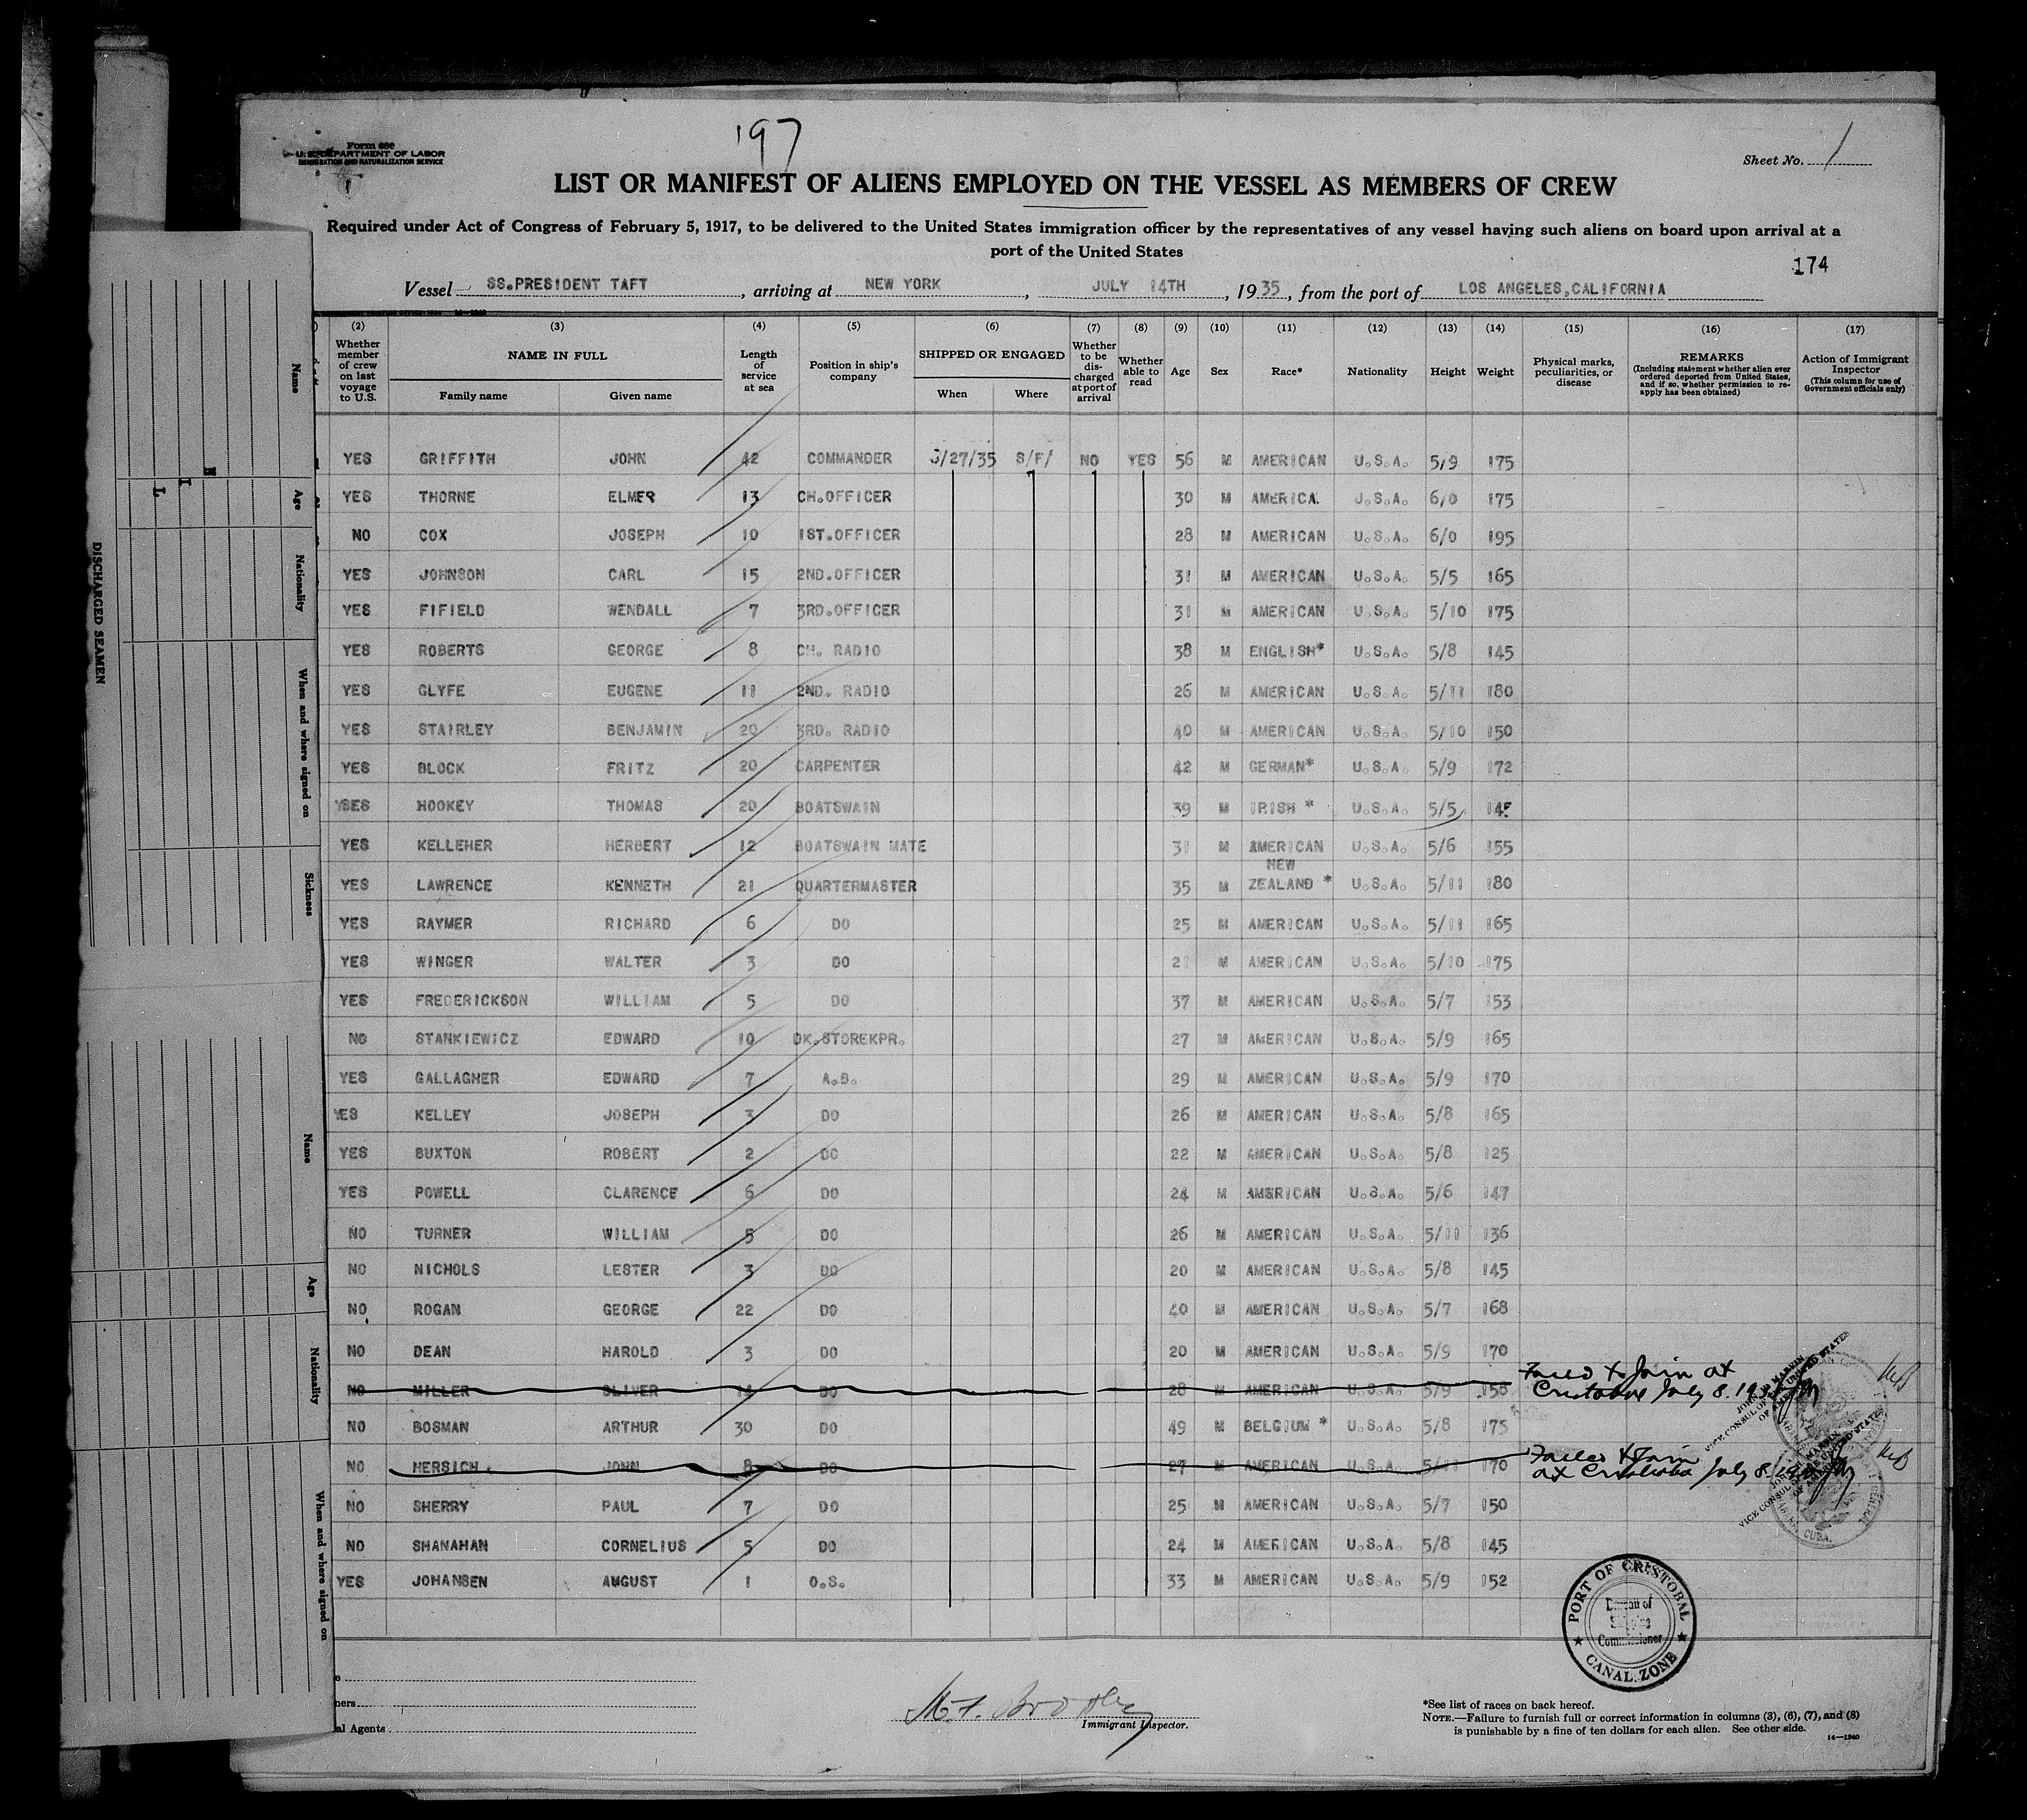 197
Form 680
U. S. DEPARTMENT OF LABOR
IMMIGRATION AND NATURALIZATION SERVICE
Sheet No. 1
LIST OR MANIFEST OF ALIENS EMPLOYED ON THE VESSEL AS MEMBERS OF CREW
Required under Act of Congress of February 5, 1917, to be delivered to the United States immigration officer by the representatives of any vessel having such aliens on board upon arrival at a
port of the United States
174
Vessel SS.PRESIDENT TAFT, arriving at NEW YORK, JULY 14TH, 1935, from the port of LOS ANGELES,CALIFORNIA
(2) (3) (4) (5) (6) (7) (8) (9) (10) (11) (12) (13) (14) (15) (16) (17)
Whether member of crew on last voyage to U.S. NAME IN FULL Family name Given name Length of service at sea Position in ship's company SHIPPED OR ENGAGED When Where Whether to be discharged at port of arrival Whether able to read Age Sex Race* Nationality Height Weight Physical marks, peculiarities, or disease REMARKS (Including statement whether alien ever ordered deported from United States, and if so, whether permission to reapply has been obtained) Action of Immigrant Inspector (This column for use of Government officials only)
YES GRIFFITH JOHN 42 COMMANDER 3/27/35 S/F/ NO YES 56 M AMERICAN U.S.A. 5/9 175
YES THORNE ELMER 13 CH.OFFICER 30 M AMERICA U.S.A. 6/0 175
NO COX JOSEPH 10 1ST.OFFICER 28 M AMERICAN U.S.A. 6/0 195
YES JOHNSON CARL 15 2ND.OFFICER 31 M AMERICAN U.S.A. 5/5 165
YES FIFIELD WENDALL 7 3RD.OFFICER 31 M AMERICAN U.S.A. 5/10 175
YES ROBERTS GEORGE 8 CH. RADIO 38 M ENGLISH* U.S.A. 5/8 145
YES GLYFE EUGENE 11 2ND. RADIO 26 M AMERICAN U.S.A. 5/11 180
YES STAIRLEY BENJAMIN 20 3RD. RADIO 40 M AMERICAN U.S.A. 5/10 150
YES BLOCK FRITZ 20 CARPENTER 42 M GERMAN* U.S.A. 5/9 172
YSES HOOKEY THOMAS 20 BOATSWAIN 39 M IRISH * U.S.A. 5/5 145
YES KELLEHER HERBERT 12 BOATSWAIN MATE 31 M AMERICAN U.S.A. 5/6 155
YES LAWRENCE KENNETH 21 QUARTERMASTER 35 M NEW ZEALAND * U.S.A. 5/11 180
YES RAYMER RICHARD 6 DO 25 M AMERICAN U.S.A. 5/11 165
YES WINGER WALTER 3 DO 21 M AMERICAN U.S.A. 5/10 175
YES FREDERICKSON WILLIAM 5 DO 37 M AMERICAN U.S.A. 5/7 153
NO STANKIEWICZ EDWARD 10 DK.STOREKPR. 27 M AMERICAN U.S.A. 5/9 165
YES GALLAGHER EDWARD 7 A.B. 29 M AMERICAN U.S.A. 5/9 170
YES KELLEY JOSEPH 3 DO 26 M AMERICAN U.S.A. 5/8 165
YES BUXTON ROBERT 2 DO 22 M AMERICAN U.S.A. 5/8 125
YES POWELL CLARENCE 6 DO 24 M AMERICAN U.S.A. 5/6 147
NO TURNER WILLIAM 5 DO 26 M AMERICAN U.S.A. 5/11 136
NO NICHOLS LESTER 3 DO 20 M AMERICAN U.S.A. 5/8 145
NO ROGAN GEORGE 22 DO 40 M AMERICAN U.S.A. 5/7 168
NO DEAN HAROLD 3 DO 20 M AMERICAN U.S.A. 5/9 170
NO MILLER OLIVER 14 DO 28 M AMERICAN U.S.A. 5/9 158 Failed to Join at Cristobal July 8. 193
NO BOSMAN ARTHUR 30 DO 49 M BELGIUM * U.S.A. 5/8 175
NO HERSICH JOHN 8 DO 27 M AMERICAN U.S.A. 5/11 170 Failed to Join at Cristobal July 8. 193
NO SHERRY PAUL 7 DO 25 M AMERICAN U.S.A. 5/7 150
NO SHANAHAN CORNELIUS 5 DO 24 M AMERICAN U.S.A. 5/8 145
YES JOHANSEN AUGUST 1 O.S. 33 M AMERICAN U.S.A. 5/9 152
VICE CONSUL OF THE UNITED STATES OF AMERICA
VICE CONSUL OF THE UNITED STATES OF AMERICA
CUBA
PORT OF CRISTOBAL
Bureau of
Commissioner
CANAL ZONE
al Agents
Immigrant Inspector.
*See list of races on back hereof.
NOTE.—Failure to furnish full or correct information in columns (3), (6), (7), and (8)
is punishable by a fine of ten dollars for each alien. See other side.
14—1240
DISCHARGED SEAMEN
Name
Age
Nationality
When and where signed on
Sickness
Name
Age
Nationality
When and where signed on